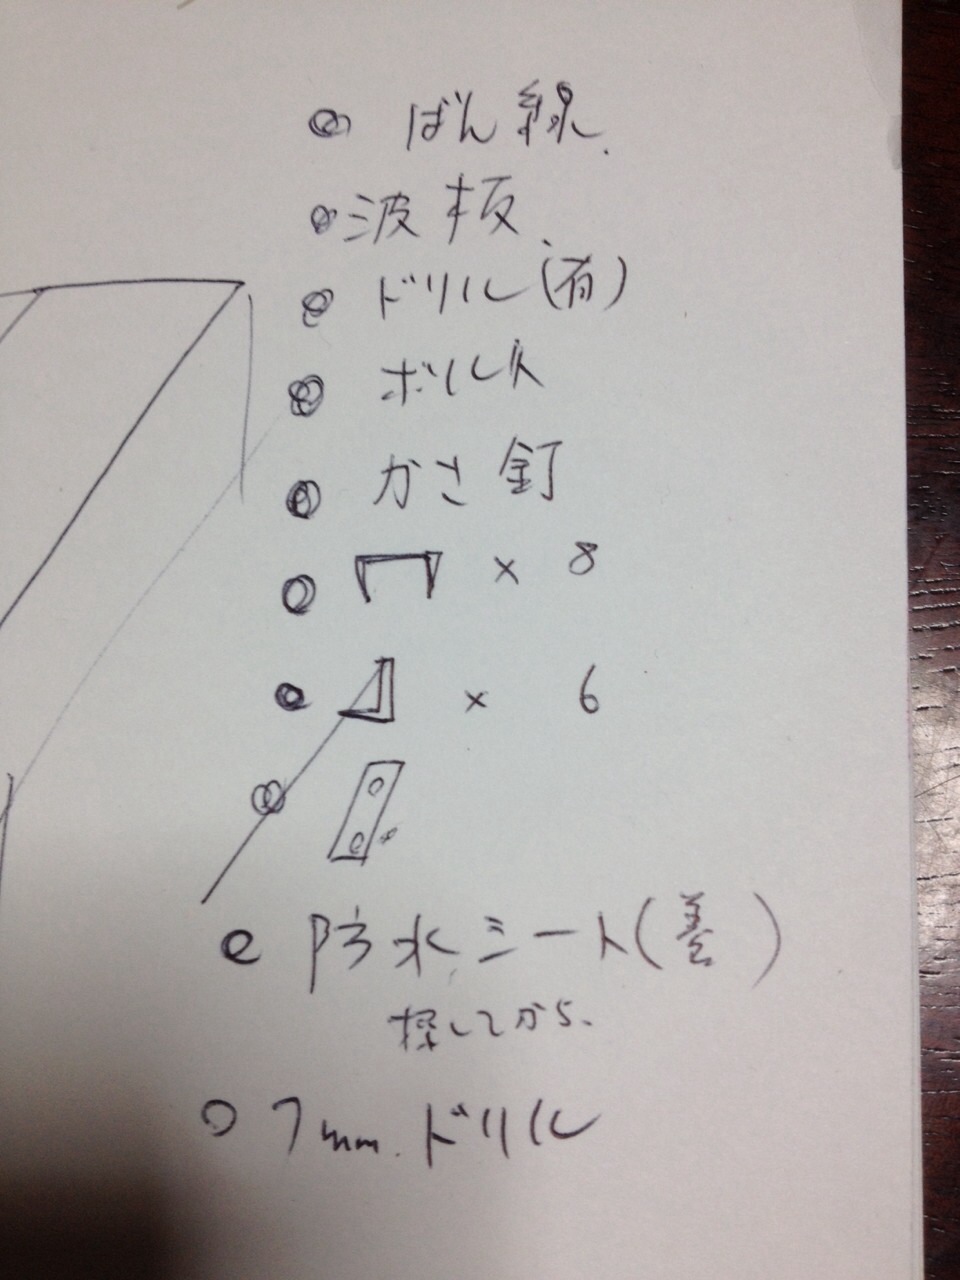 ばん線.
波板
ドリル(有)
ボルト
かさ釘
× 8
× 6
防水シート( )
探してから.
7mm.ドリル